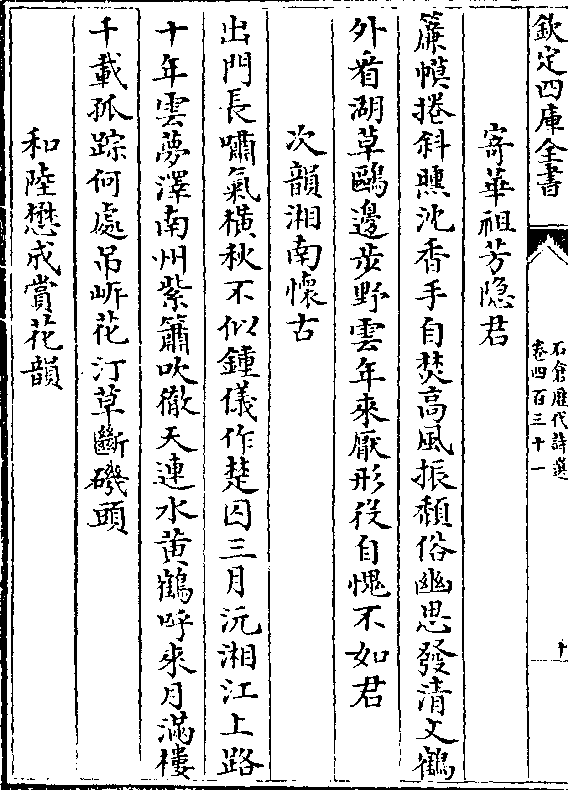 欽定四庫全書
石倉歷代詩選
卷四百三十一
十
寄華祖芳隐君
簾幙捲斜曛沈香手自焚高風振頹俗幽思發清文鶴
外看湖草鷗邊步野雲年來厭形役自愧不如君
次韻湘南懷古
出門長嘯氣橫秋不似鍾儀作楚囚三月沅湘江上路
十年雲夢澤南州紫簫吹徹天連水黄鶴呼來月滿樓
千載孤踪何處吊岍花汀草斷磯頭
和陸懋成賞花韻